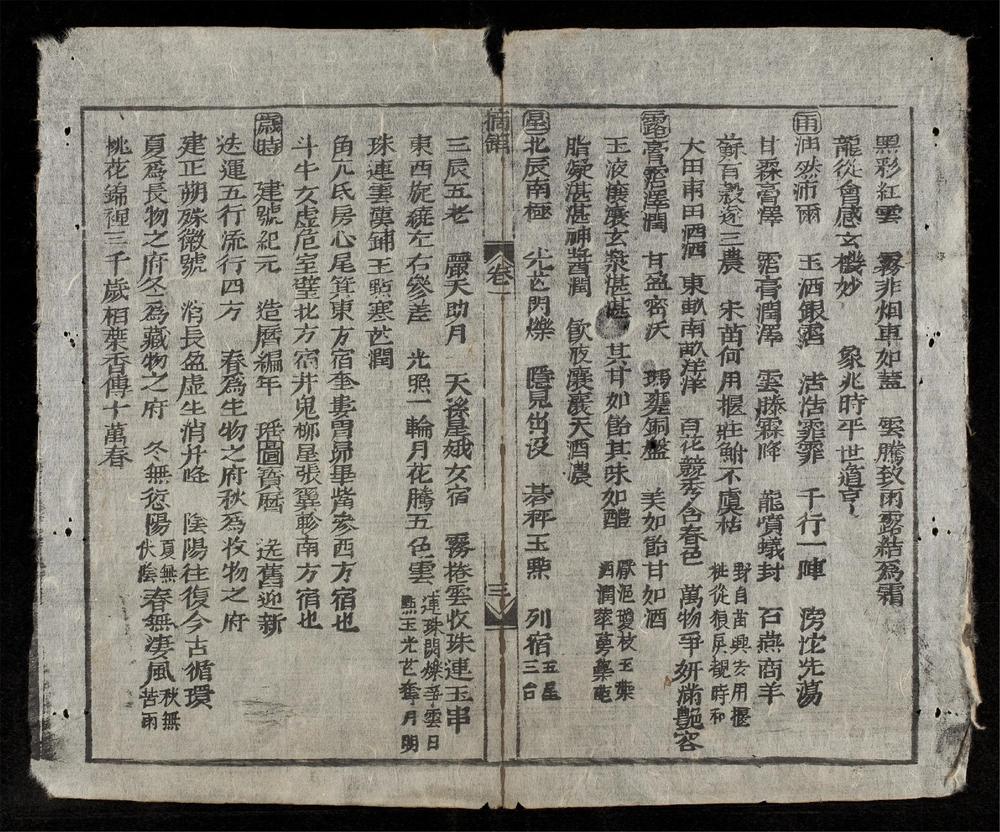 黑彩紅雲 霧非烟車如蓋 雲騰致雨露結爲霜
龍從會感玄機妙 象兆時平世道亨
雨 油然沛爾 玉洒銀 浩浩霏霏 千行一陣 滂沱先蕩
甘霖膏澤 霑膏潤澤 雲滕霖降 龍賓蟻封 石燕商羊
蘇百穀遂三農 宋苗何用揠莊鮒不虞枯 野自苗興去用揠 時和
大田甫田洒洒 東畝南畝洋洋 百花競秀含春色 萬物爭妍滿艷容
露 膏雲澤潤 甘盈密沃 瑪甕銅盤 美如飴甘如酒
玉液瀼瀼玄漿湛湛 其甘如飴其味如醴 浥瓊枝玉葉 洒潤華萼
脂凝湛湛神醬潤 飲夜瀼瀼天酒濃
星 北辰南極 光芒閃爍 隱見出沒 碁秤玉㸃 列宿 五星 三台
備錦 卷一 三
三辰五老 嚴天助月 天孫星娥女宿 霧捲雲收珠連玉串
東西旋繞左右參差 光照一輪月花騰五色雲 連珠閃爍爭雲日 㸃玉光芒奪月明
珠連雲翼鋪玉㸃寒芒潤
角亢氐房心尾箕東方宿奎婁胃昴畢觜參西方宿也
斗牛女虛危室壁北方宿井鬼柳星張翼軫南方宿也
歲時 建號紀元 造曆編年 珤圖寶曆 送舊迎新
迭運五行流行四方 春爲生物之府秋爲收物之府
建正朔殊徽號 消長盈虛生消升降 陰陽往復今古循環
夏爲長物之府冬爲藏物之府 冬無愆陽 夏無伏陰 春無凄風 秋無苦雨
桃花錦裡三千歲相葉香傳十萬春